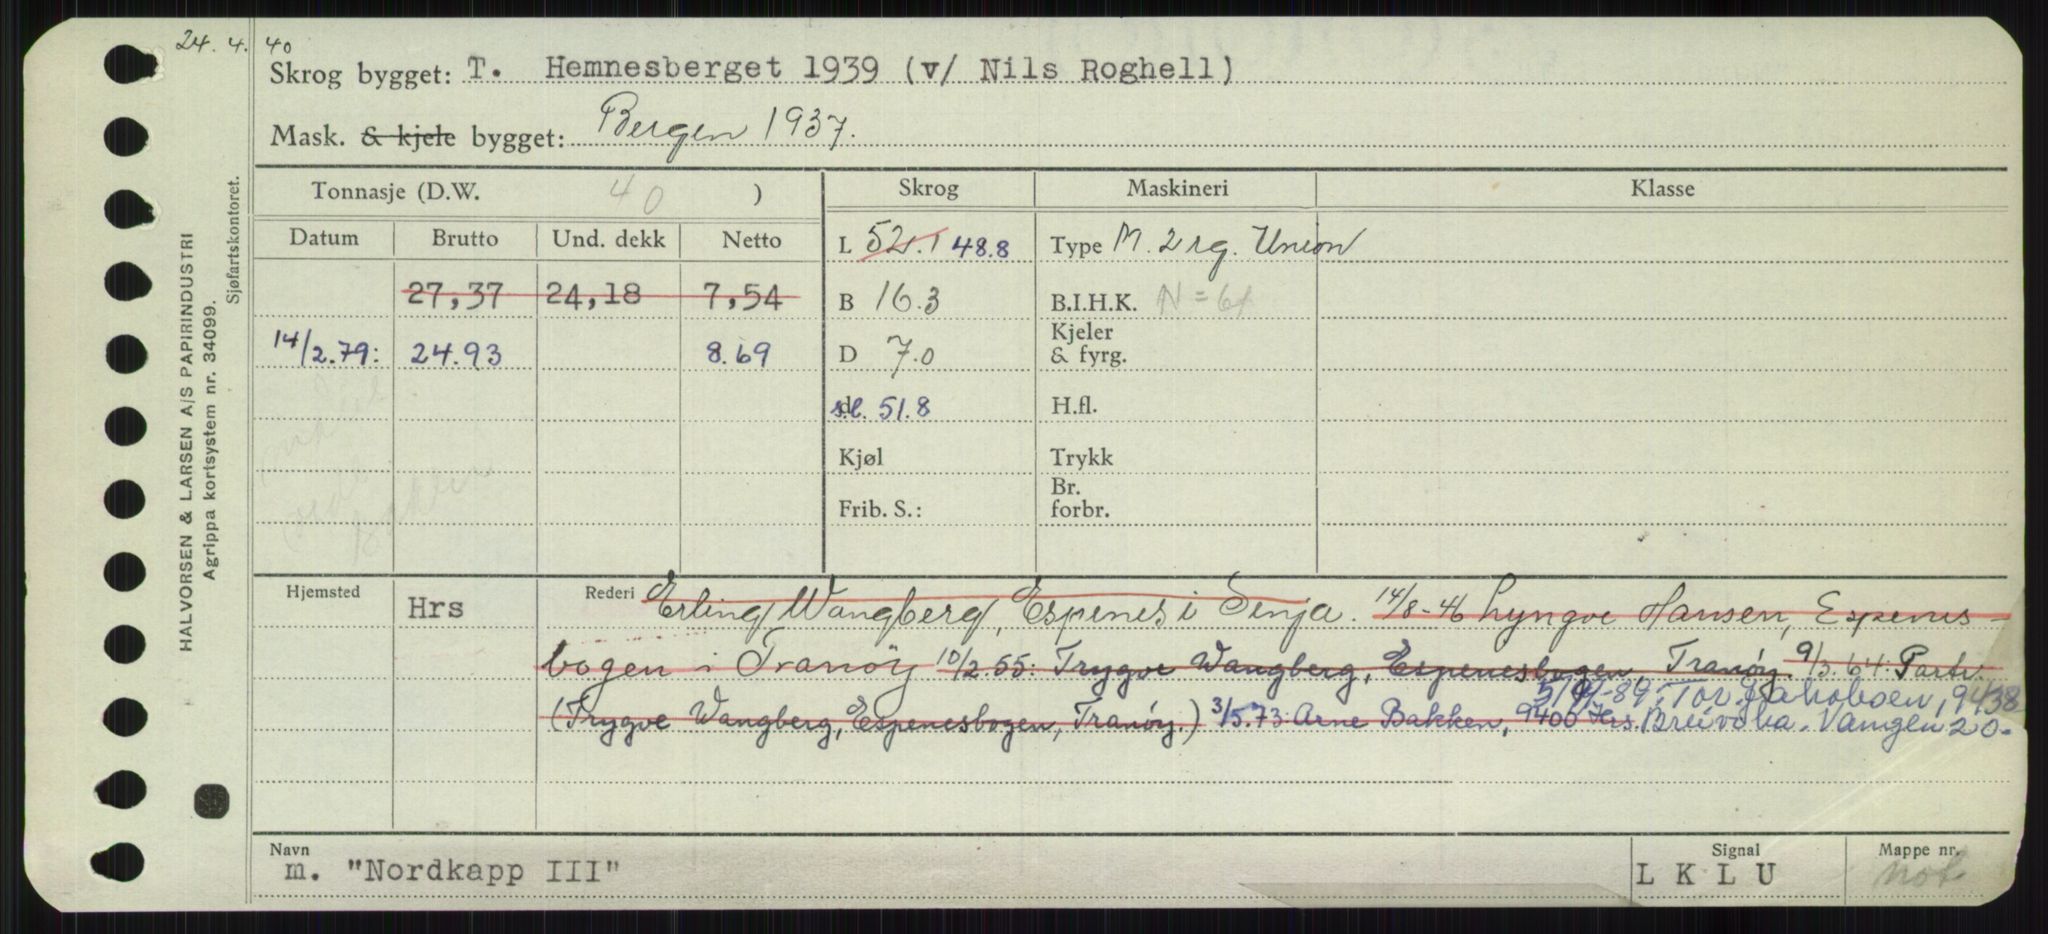 24.4.40
Skrog bygget: T. Hemnesberget 1939 (v/ Nils Roghell)
Mask. & kjele bygget: Bergen 1937.
Tonnasje (D.W. 40 )
Skrog
Maskineri
Klasse
Datum
Brutto
Und. dekk
Netto
27,37 24,18 7,54
14/2.79: 24.93 8.69
L 52.1 48.8
B 16.3
D 7.0
s.l. 51.8
Kjøl
Frib. S.:
Type M. 2 rg. Union
B.I.H.K.
Kjeler
& fyrg.
H.fl.
Trykk
Br.
forbr.
Hjemsted
Hrs
Rederi Erling Wangberg, Espenes i Senja. 14/8-46 Lyngve Hansen, Espenes-
bogen i Tranöy 10/2.55: Trygve Wangberg, Espenesbogen, Tranöy. 9/3.64: Partr.
(Trygve Wangberg, Espenesbogen, Tranöy.) 3/5.73: Arne Bakken, 9400 Hrs.
-89: Tor Jakobsen, 9438
Breivoba. Vangen 20.
Navn
m. "Nordkapp III"
Signal
L K L U
Mappe nr.
not
HALVORSEN & LARSEN A/S PAPIRINDUSTRI
Agrippa kortsystem nr. 34099.
Sjøfartskontoret.